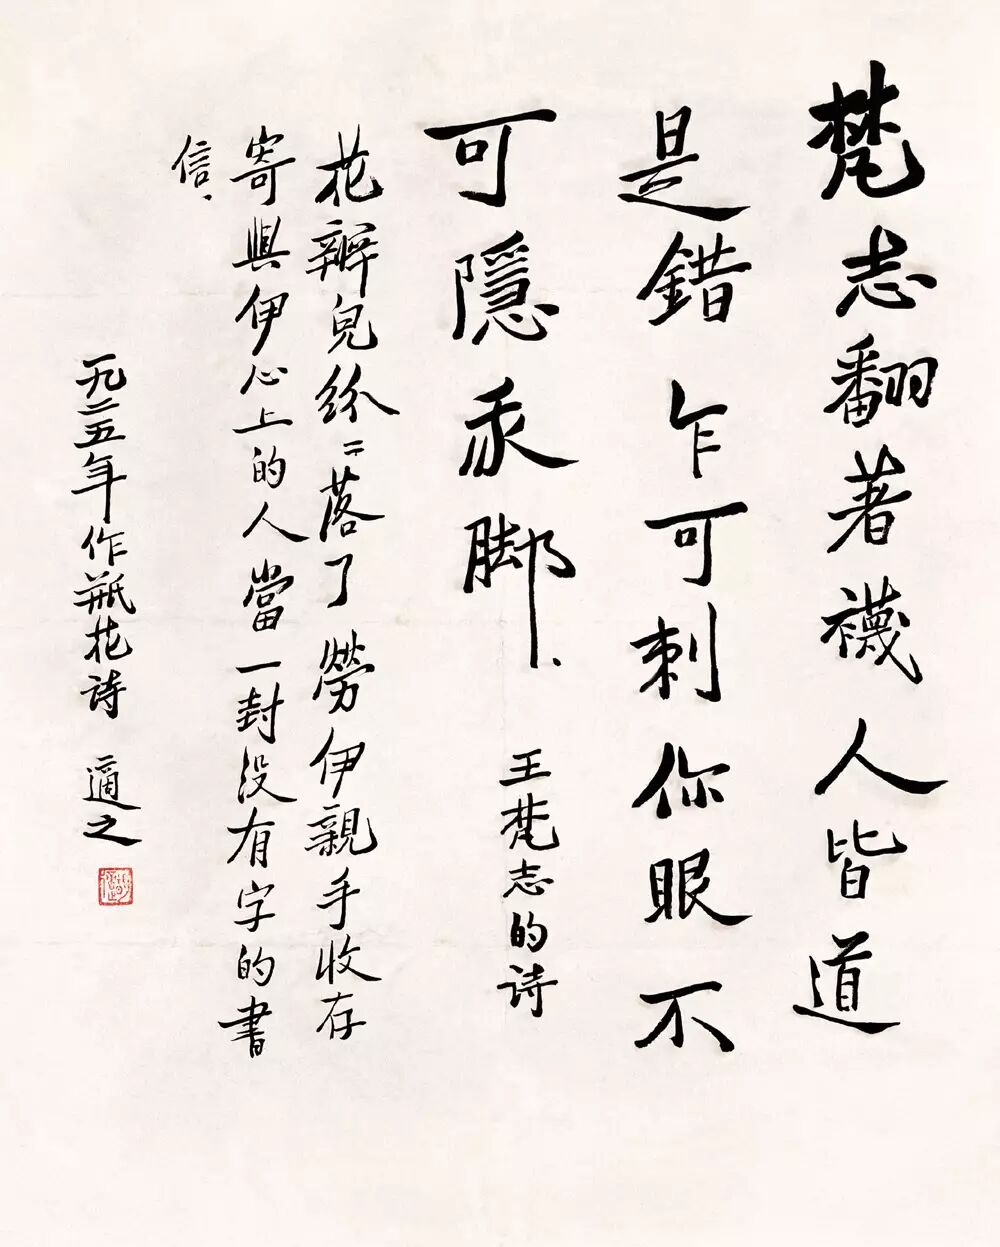 梵志翻著襪人皆道
是錯乍可刺你眼不
可隱我脚
王梵志的诗
花瓣兒紛〻落了勞伊親手收存
寄與伊心上的人當一封没有字的書
信
一九二五年作瓶花诗 適之